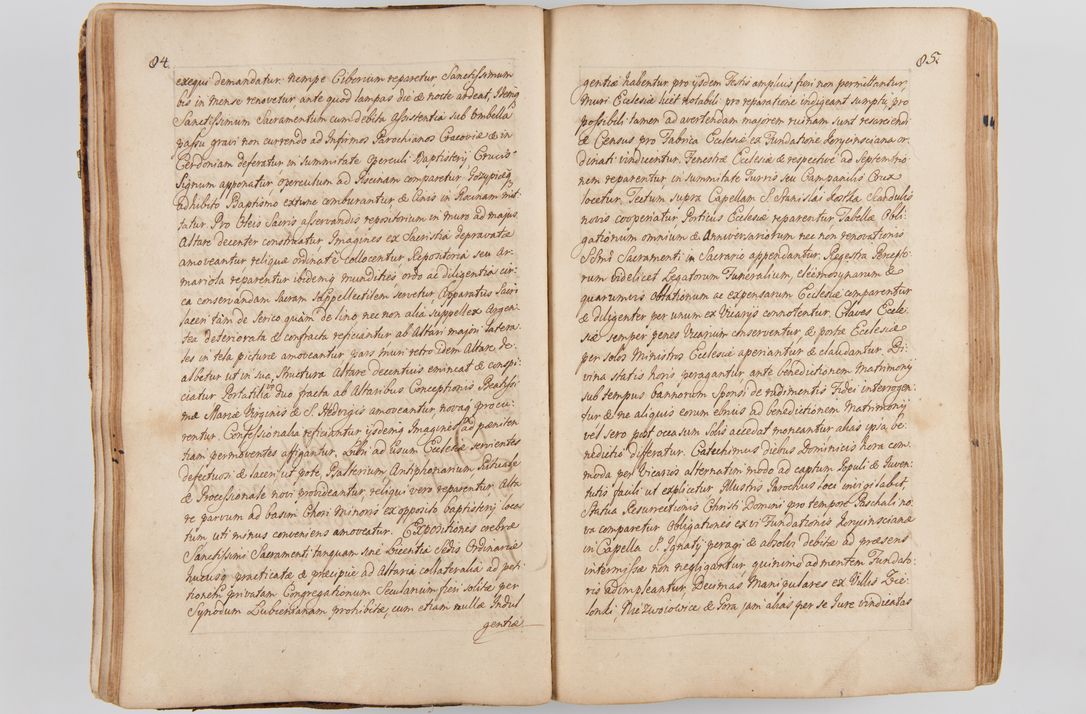 84.
exequi demandatur nempe Ciborium reparetur Sanctissimum
bis in mense renovetur ante quod lampas die & nocte ardeat, Itemq
Sanctissimum Sacramentum cum debita assistentia sub Umbella
passu gravi non currendo ad Infirmos Parochianos Cracoviæ & in
Cerdoniam deferatur in summitate Operculi Baptisterij Crucis
Signum apponatur, operculum ad Piscinam comparetur, Gozypiaq
adhibito Baptismo extunc comburantur & Cinis in Piscinam mit:
tatur. Pro Oleis Sacris asservandis repositorium in muro ad majus
Altare decenter construatur Imagines ex Sacristia depravatæ
amoveantur reliquæ ordinatè collocentur Repositoria seu Ar:
mariola reparentur ibidemq mundities, ordo ac diligentia cir:
ca conservandam Sacram Suppellectilem servetur, Apparatus Sacri
laceri tam de Serico quàm de lino nec non alia suppellex Argen:
tea deteriorata & confracta reficiantur ab Altari majori latera:
les in tela picturæ amoveantur pars muri retro idem Altare de:
albetur ut in sua Structura Altare decentius emineat & conspi:
ciatur Portatilia in duo fracta ab Altaribus Conceptionis Beatissi
mæ Mariæ Virginis & S. Hedvigis amoveantur, novaq procu:
rentur. Confessionalia reficiantur ijsdemq Imagines ad pæniten
tiam permoventes affigantur, Libri ad Usum Ecclesiæ servientes
defectuosi & laceri, ut pote Psalterium Antiphonarium Gratuale
& Processionale novi provideantur, reliqui vero reparentur Alta
re parvum ad basim Chori Minoris ex opposito baptisterij loca:
tum uti minus conveniens amoveatur. Expositiones crebræ
Sanctissimi Sacramenti tanquam sine Licentia Sedis Ordinariæ
hucusq practicatæ & præcipue ad Altaria collateralia ad peti:
tionem privatam Congregationum Secularium fieri solitæ per
Synodum Lubiensianam prohibitæ, cum etiam nullæ Indul
gentiæ
85.
gentiæ habentur pro ijsdem Festis amplius fieri non permittantur,
Muri Ecclesiæ licet notabili pro reparatione indigeant sumptu, pro
possibili tamen ad avertendam majorem ruinam sunt resarciendi
& Census pro Fabrica Ecclesiæ ex Fundatione Koryciusciana or
dinati vindicentur. Fenestræ Ecclesiæ & respective ad Septemtrio
nem reparentur, in summitate Turris seu Campanilis Crux
locetur. Tectum supra Capellam S. Stanislai Kostka Scandulis
novis cooperiatur Porticus Ecclesiæ reparentur, Tabellæ Obli:
gationum omnium & Anniversariorum nec non renovationis
Ssmi Sacramenti in Sacrario appendantur. Regestra Percepto:
rum videlicet Legatorum Funeralium, eleemosynarum &
quarumvis Oblationum ac expensarum Ecclesiæ comparentur
& diligenter per unum ex Vicarijs connotentur. Claves Eccle:
siæ semper penes Vicarium conserventur, & portæ Ecclesiæ
per solos Ministros Ecclesiæ aperiantur & claudantur. Di:
vina statis horis peragantur, ante benedictionem Matrimonij
sub tempus bannorum Sponsi de rudimentis Fidei interrogen:
tur & ne aliquis eorum ebrius ad benedictionem Matrimonij
vel Sero post occasum Solis accedat moneantur alias ipsa be:
nedictio differatur. Catechismus diebus Dominicis hora com:
moda per Vicarios alternatim modo ad captum Populi & Juven:
tutis facili ut explicetur Illustris Parochus loci invigilabit,
Statua Resurrectionis Christi Domini pro tempore Paschali no:
va comparetur Obligationes ex vi Fundationis Korycinscianæ
in Capella S. Ignatij peragi & absolvi debitæ ad præsens
intermissæ non negligantur quinimo ad mentem Fundato:
ris adimpleantur. Decimas Manipulares ex Villis Bie
lonki, Niezwoiowice & Gora jam alias per se Jure vindicatas